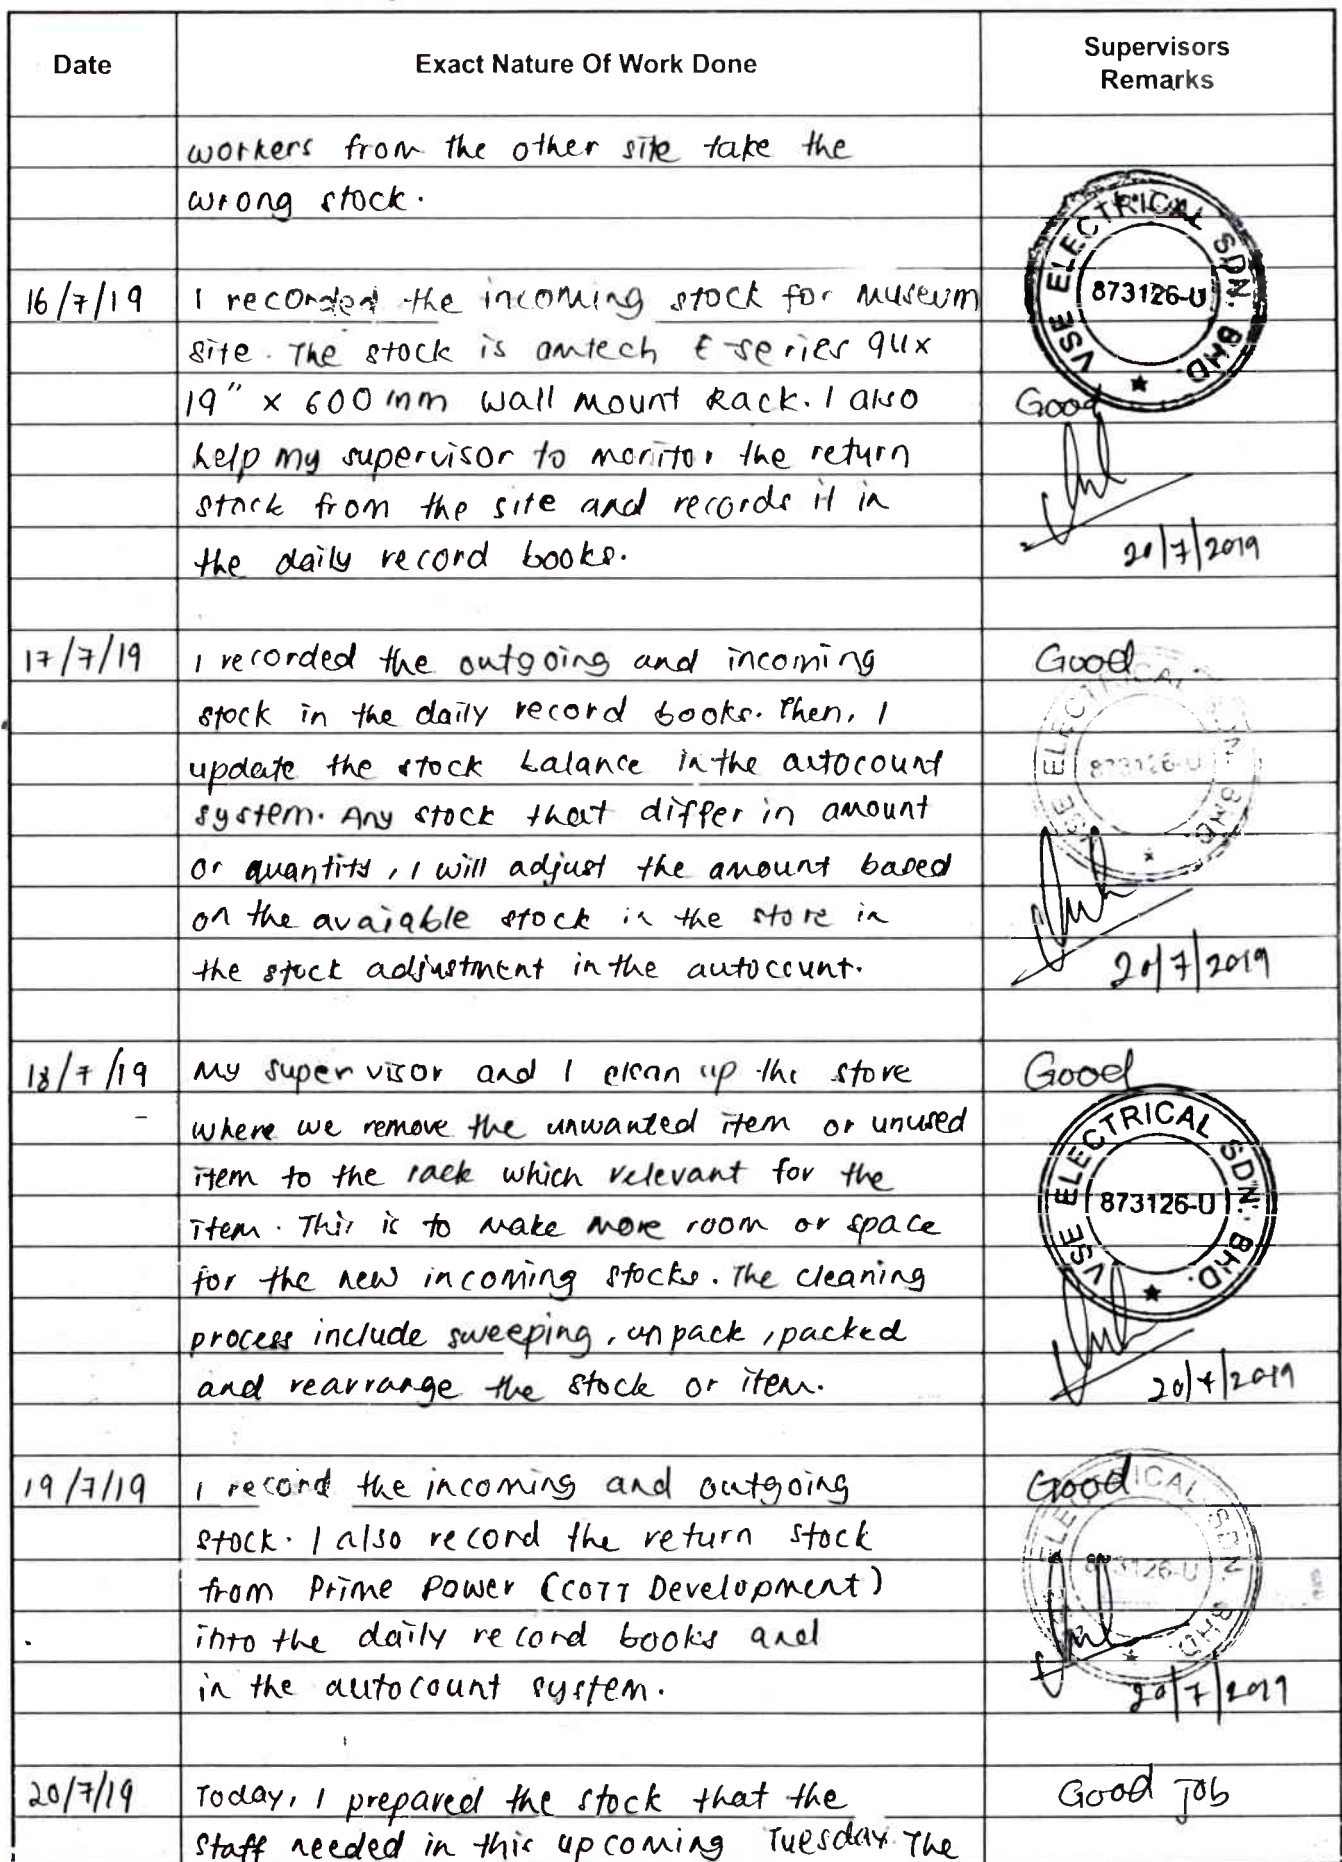 Date
Exact Nature Of Work Done
Supervisors
Remarks
workers from the other site take the
wrong stock.
VSE ELECTRICAL SDN. BHD.
873126-U
16/7/19
I recorded the incoming stock for Museum
site. The stock is amtech E-series 9Ux
19" x 600mm wall mount Rack. I also
help my supervisor to monitor the return
stock from the site and records it in
the daily record books.
Good
20/7/2019
17/7/19
I recorded the outgoing and incoming
stock in the daily record books. Then, I
update the stock balance in the autocount
system. Any stock that differ in amount
or quantity, I will adjust the amount based
on the avaiable stock in the store in
the stock adjustment in the autocount.
Good
VSE ELECTRICAL SDN. BHD.
873126-U
20/7/2019
18/7/19
My supervisor and I clean up the store
where we remove the unwanted item or unused
item to the rack which relevant for the
item. This is to make more room or space
for the new incoming stocks. The cleaning
process include sweeping, unpack, packed
and rearrange the stock or item.
Good
VSE ELECTRICAL SDN. BHD.
873126-U
20/7/2019
19/7/19
I record the incoming and outgoing
stock. I also record the return stock
from Prime Power (COTT Development)
into the daily record books and
in the autocount system.
Good
ELECTRICAL SDN. BHD.
873126-U
20/7/2019
20/7/19
Today, I prepared the stock that the
staff needed in this upcoming Tuesday. The
Good Job